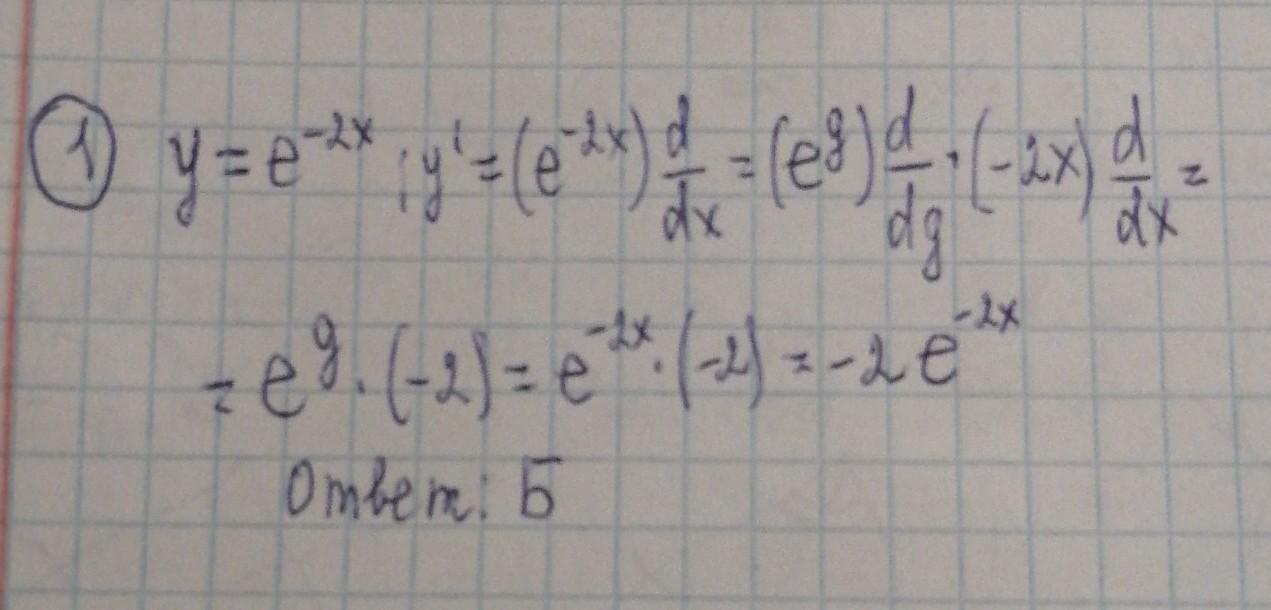 1 y = e^{-2x}; y' = (e^{-2x}) d/dx = (e^g) d/dg · (-2x) d/dx =
= e^g · (-2) = e^{-2x} · (-2) = -2e^{-2x}
Ответ: Б